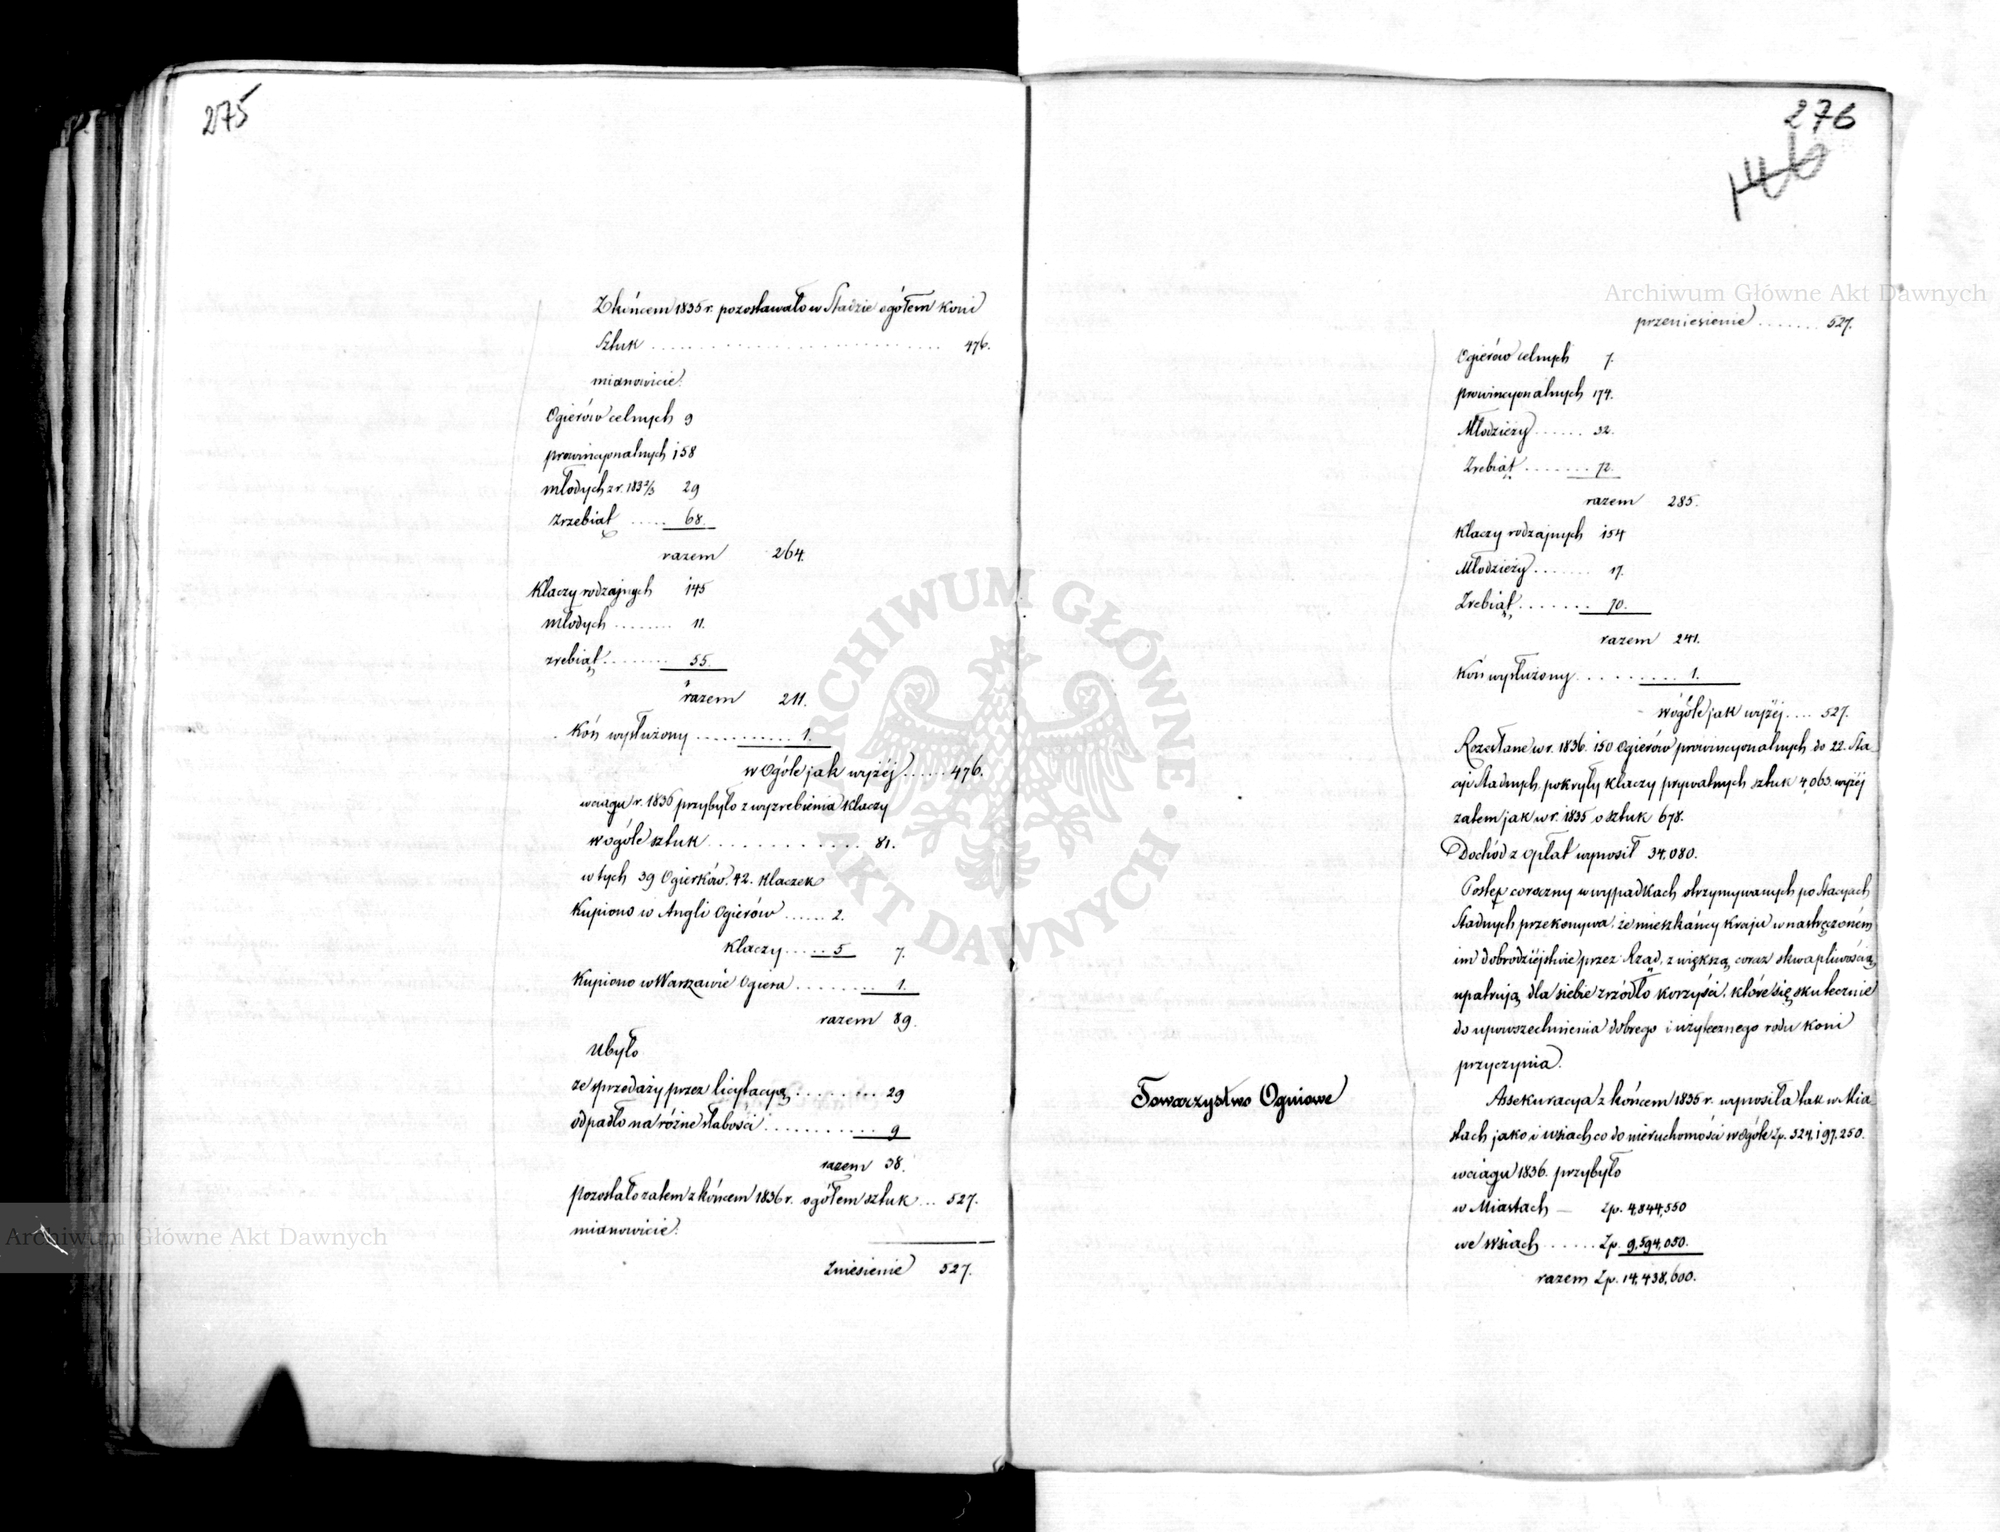 275
Z końcem 1835 r. pozostawało w Stadzie ogółem koni
Sztuk .......... 476.
mianowicie:
Ogierów celnych 9
prowincyonalnych 158
młodych z r. 183 2/3 29
źrzebiąt ..... 68.
razem 264.
Klaczy rodzajnych 145
młodych ........ 11.
zrebiąt ........ 55.
razem 211.
Koń wysłużony ........... 1.
w Ogóle jak wyżéj ...... 476.
w ciągu r. 1836 przybyło z wyzrebienia Klaczy
w ogóle sztuk ............ 81.
w tych 39 Ogierków. 42. Klaczek
Kupiono w Angli Ogierów ...... 2.
Klaczy ..... 5 7.
Kupiono w Warszawie Ogiera ........ 1.
razem 89.
Ubyło
ze sprzedaży przez licytacyą ........ 29
odpadło na różne słabości ........... 9
razem 38.
Pozostało zatem z końcem 1836 r. ogółem sztuk ... 527.
mianowicie:
Zniesienie 527.
276
146
przeniesienie ....... 527.
Ogierów celnych 7.
prowincyonalnych 174.
Młodzieży ...... 32.
Zrebiąt ....... 72.
razem 285.
Klaczy rodzajnych 154
Młodzieży ....... 17.
Zrebiąt ....... 70.
razem 241.
Koń wysłużony .......... 1.
w ogóle jak wyżéj .... 527.
Rozesłane w r. 1836. 150 Ogierów prowincyonalnych do 22. Sta-
cyi Stadnych, pokryły Klaczy prywatnych sztuk 4,063. wyżéj
zatem jak w r. 1835 o sztuk 678.
Dochód z opłat wynosił 34,080.
Postęp coroczny w wypadkach otrzymywanych po Stacyach
Stadnych przekonywa, że mieszkańcy Kraju w nastręczoném
im dobrodziejstwie przez Rząd, z większą coraz skwapliwością,
upatrują dla siebie zrzódło korzyści, które się skutecznie
do upowszechnienia dobrego i użytecznego rodu koni
przyczynia.
Towarzystwo Ogniowe
Assekuracya z końcem 1835 r. wynosiła tak w Mia-
stach jako i wsiach co do nieruchomości w ogóle Zp. 524,197,250.
w ciągu 1836. przybyło
w Miastach — Zp. 4,844,550
we wsiach ...... Zp. 9,594,050.
razem Zp. 14,438,600.
Archiwum Główne Akt Dawnych
Archiwum Główne Akt Dawnych
ARCHIWUM GŁÓWNE · AKT DAWNYCH ·